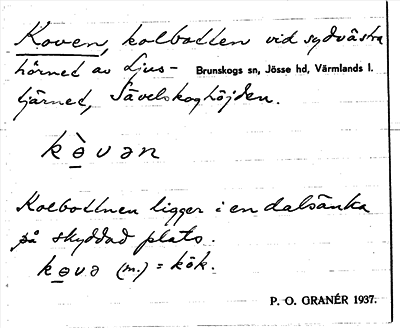 Koven, kolbotten vid sydvästra
hörnet av Ljus- Brunskogs sn, Jösse hd, Värmlands l.
tjärnet, Sävelskoghöjden.
kə̀vən
Kolbottnen ligger i en dalsänka
på skyddad plats.
kəvə (m.) = kök.
P. O. GRANÉR 1937.